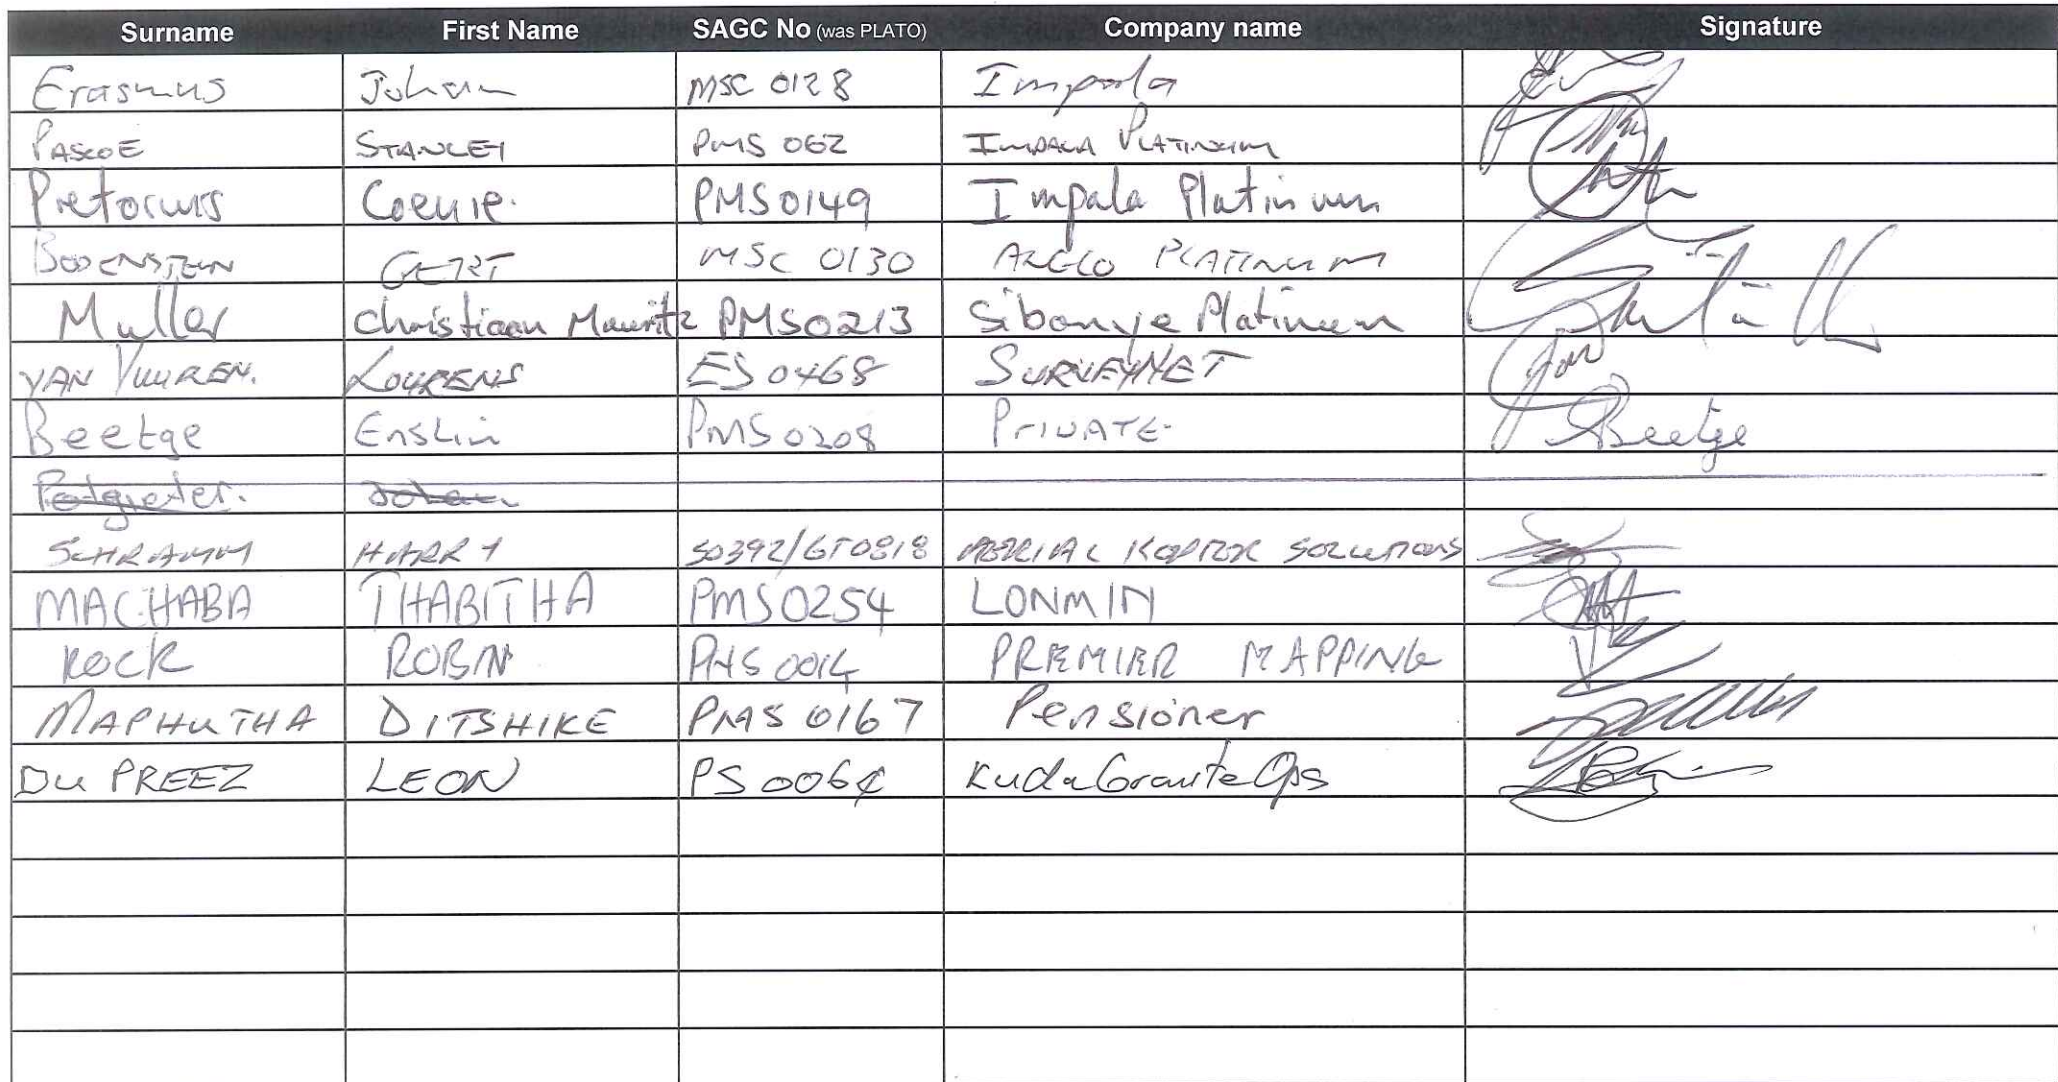 Surname First Name SAGC No (was PLATO) Company name Signature
Erasmus Johan MSC 0128 Impala
PASCOE STANLEY PMS 062 IMPALA PLATINUM
Pretorius Coenie. PMS0149 Impala Platinum
BODENSTEIN GERT MSC 0130 ANGLO PLATINUM
Muller Christiaan Mauritz PMS0213 Sibanye Platinum
VAN VUUREN. LOURENS ES 0468 SURVEYNET
Beetge Enslin PMS0208 PRIVATE Beetge
Potgieter. Johan
SCHRAMM HARRY S0392/GT0818 AERIAL KOPTOR SOLUTIONS
MACHABA THABITHA PMS0254 LONMIN
ROCK ROBIN PMS 0014 PREMIER MAPPING
MAPHUTHA DITSHIKE PMS 0167 Pensioner
DU PREEZ LEON PS 0064 Kudu Granite Ops